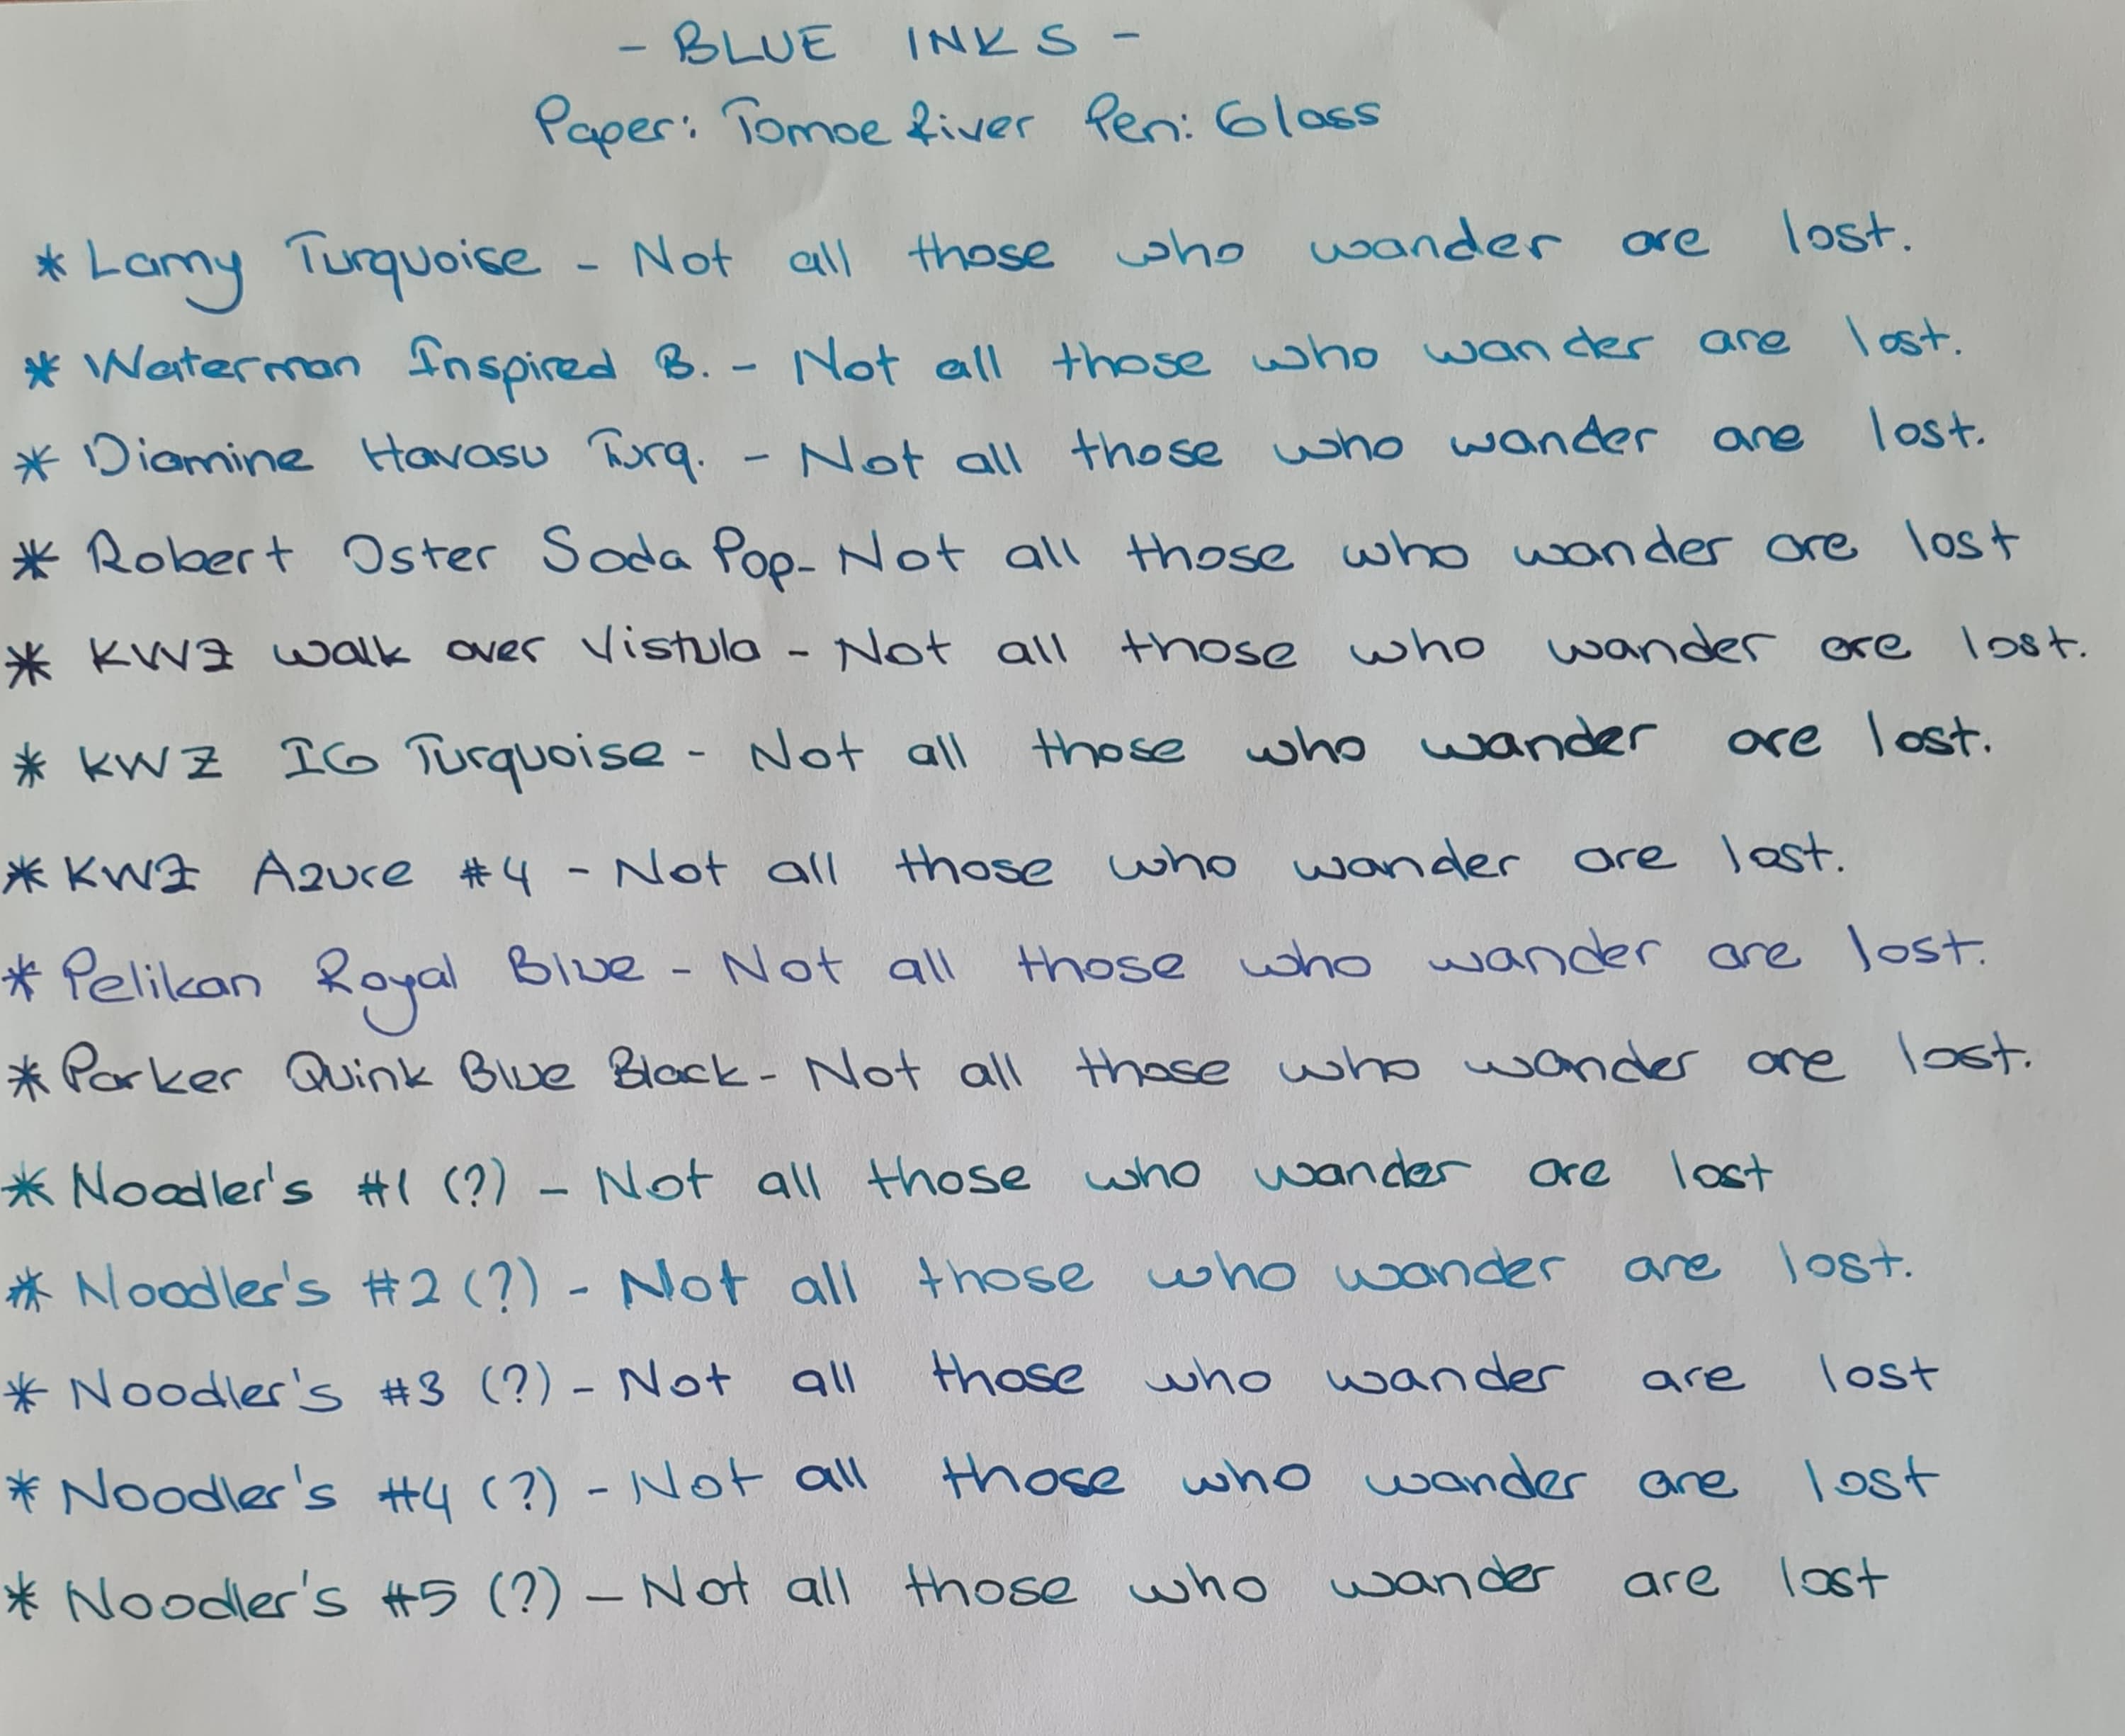 - BLUE INKS -
Paper: Tomoe River Pen: Glass
* Lamy Turquoise - Not all those who wander are lost.
* Waterman Inspired B. - Not all those who wander are lost.
* Diamine Havasu Turq. - Not all those who wander are lost.
* Robert Oster Soda Pop - Not all those who wander are lost
* KWZ walk over Vistula - Not all those who wander are lost.
* KWZ IG Turquoise - Not all those who wander are lost.
* KWZ Azure #4 - Not all those who wander are lost.
* Pelikan Royal Blue - Not all those who wander are lost.
* Parker Quink Blue Black - Not all those who wander are lost.
* Noodler's #1 (?) - Not all those who wander are lost
* Noodler's #2 (?) - Not all those who wander are lost.
* Noodler's #3 (?) - Not all those who wander are lost
* Noodler's #4 (?) - Not all those who wander are lost
* Noodler's #5 (?) - Not all those who wander are lost